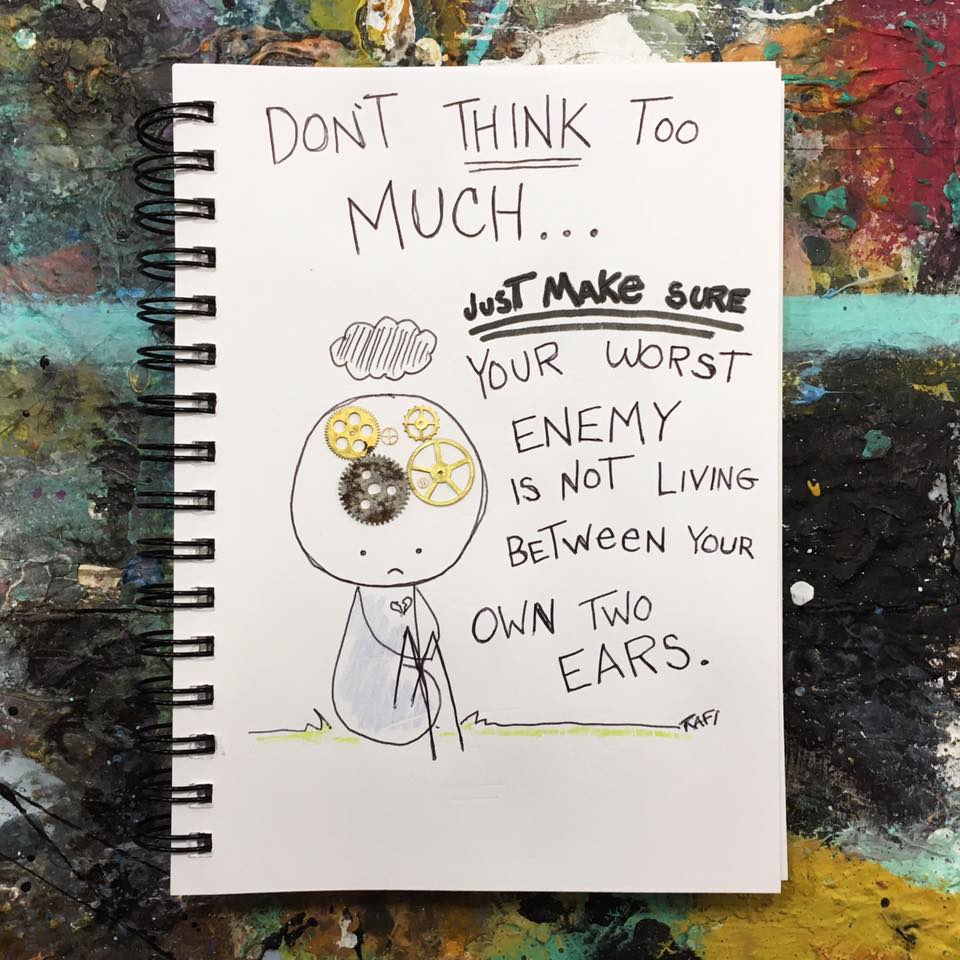 DON'T THINK TOO
MUCH...
JUST MAKE SURE
YOUR WORST
ENEMY
IS NOT LIVING
BETWEEN YOUR
OWN TWO
EARS.
RAFI